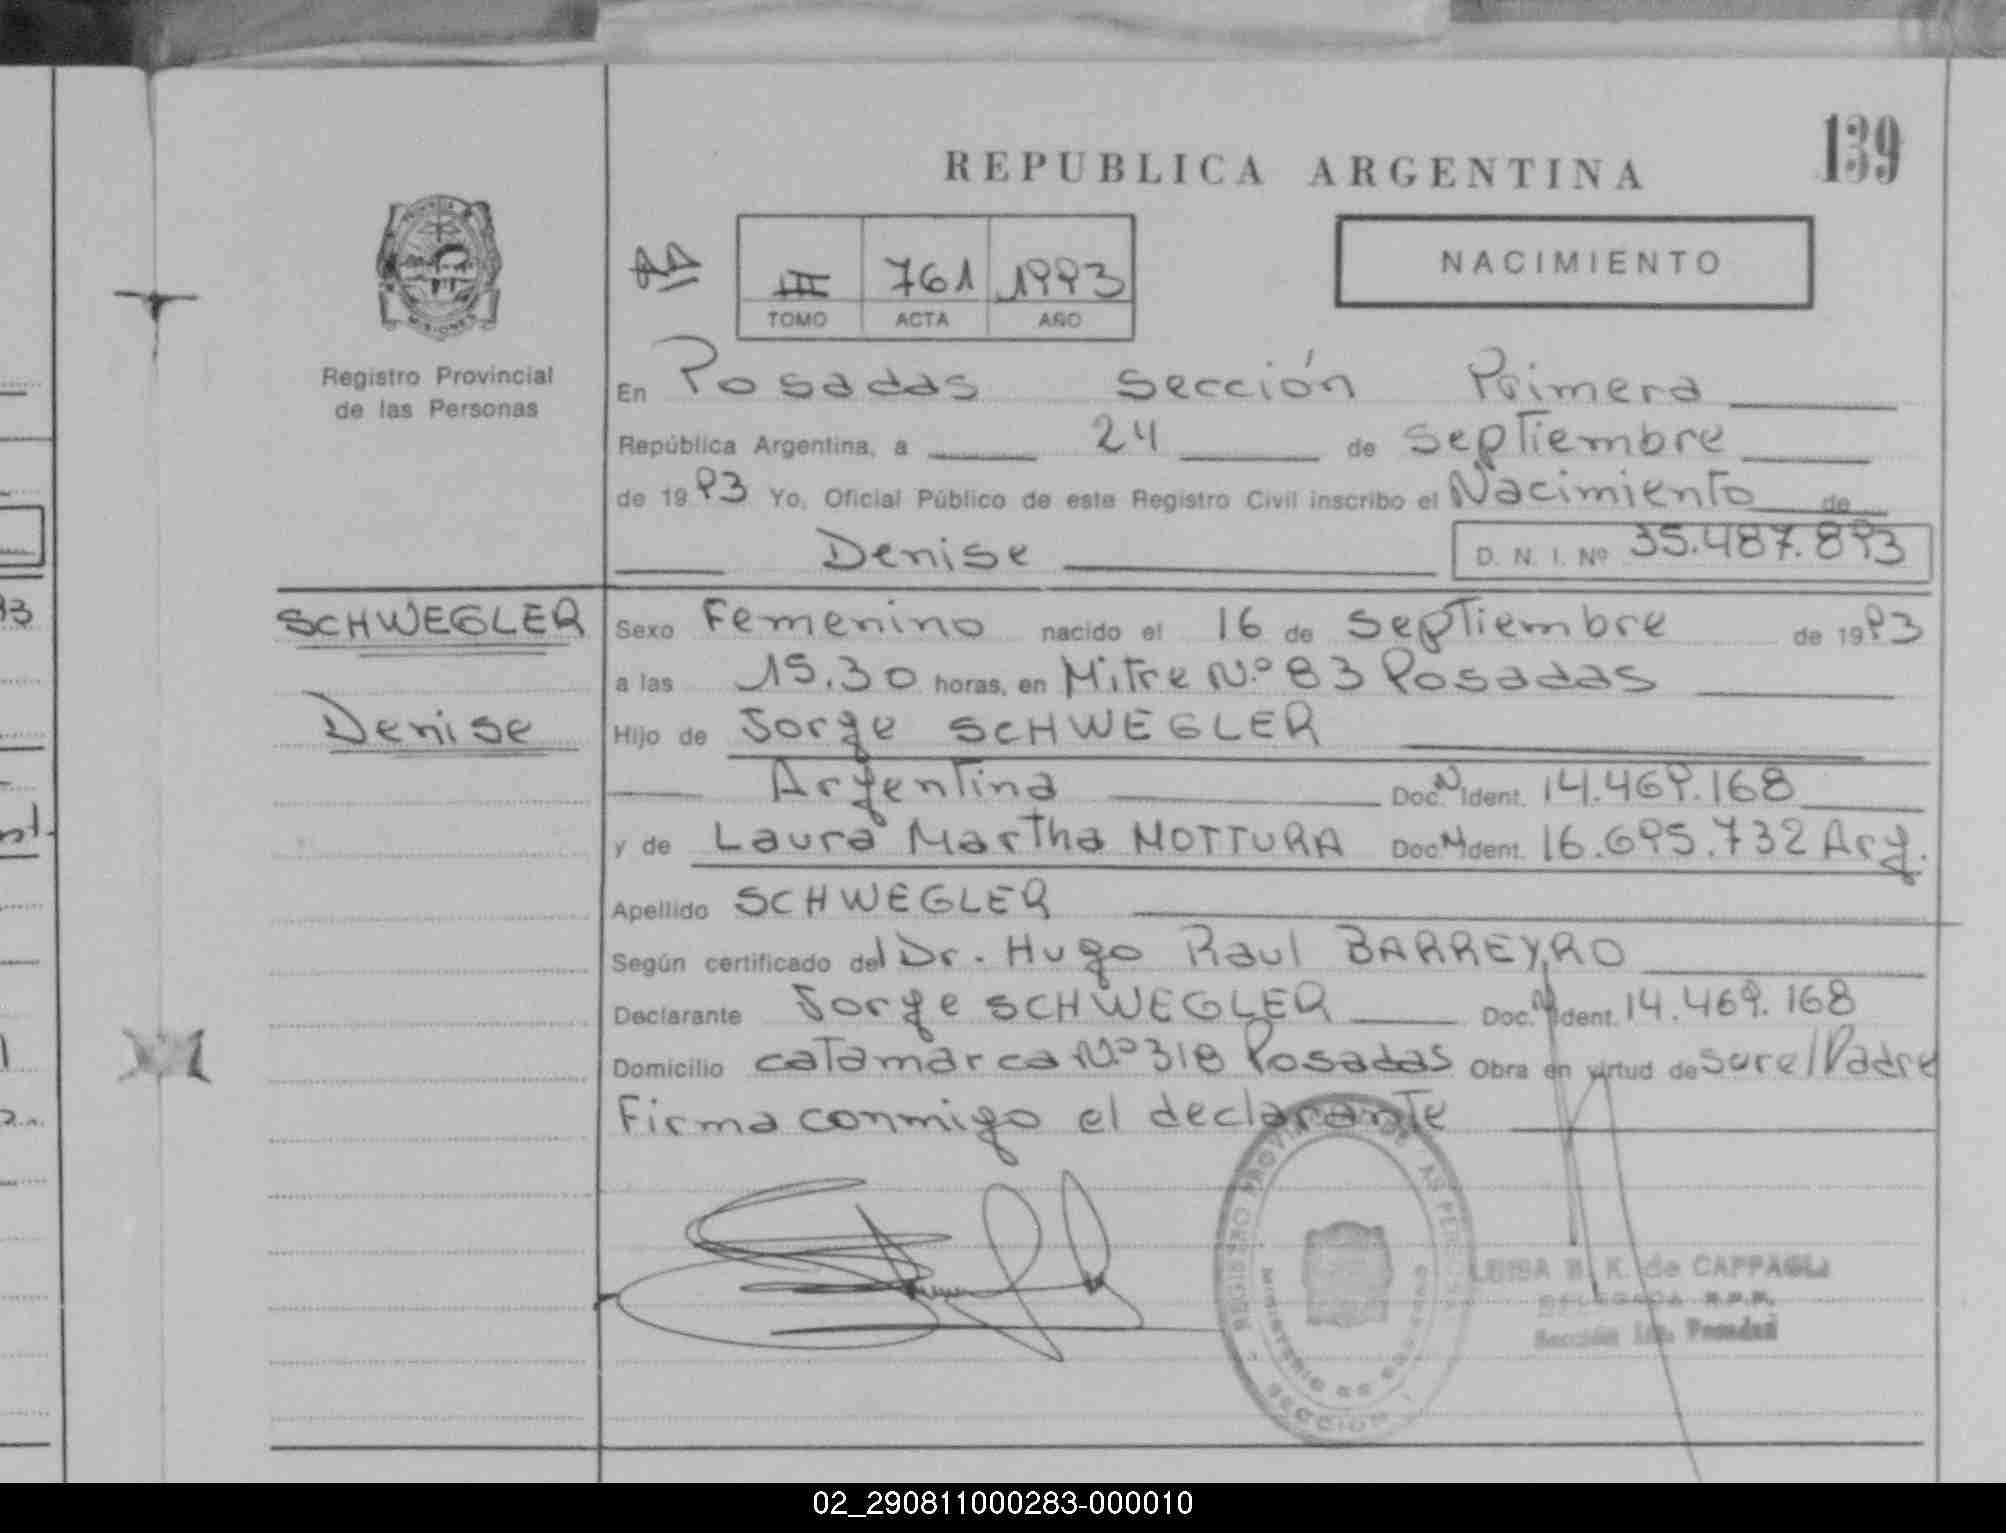 REPUBLICA ARGENTINA
139
NACIMIENTO
III 761 1993
TOMO ACTA AÑO
PROVINCIA DE
MISIONES
Registro Provincial
de las Personas
En Posadas Sección Primera
República Argentina, a 24 de Septiembre
de 1993 Yo, Oficial Público de este Registro Civil inscribo el Nacimiento de
Denise D. N. I. Nº 35.487.893
SCHWEGLER
Denise
Sexo Femenino nacido el 16 de Septiembre de 1993
a las 15.30 horas, en Mitre N.º 83 Posadas
Hijo de Jorge SCHWEGLER
Argentina Doc. N Ident. 14.469.168
y de Laura Martha MOTTURA Doc. N Ident. 16.695.732 Arg.
Apellido SCHWEGLER
Según certificado del Dr. Hugo Raul BARREYRO
Declarante Jorge SCHWEGLER Doc. N Ident. 14.469.168
Domicilio catamarca N.º 318 Posadas Obra en virtud de ser el Padre
Firma conmigo el declarante
REGISTRO PROVINCIAL DE LAS PERSONAS
MINISTERIO DE GOBIERNO
SECCION 1
B. K. de CAPPAGLI
DELEGADA R.P.P.
Sección 1ra. Posadas
02_290811000283-000010